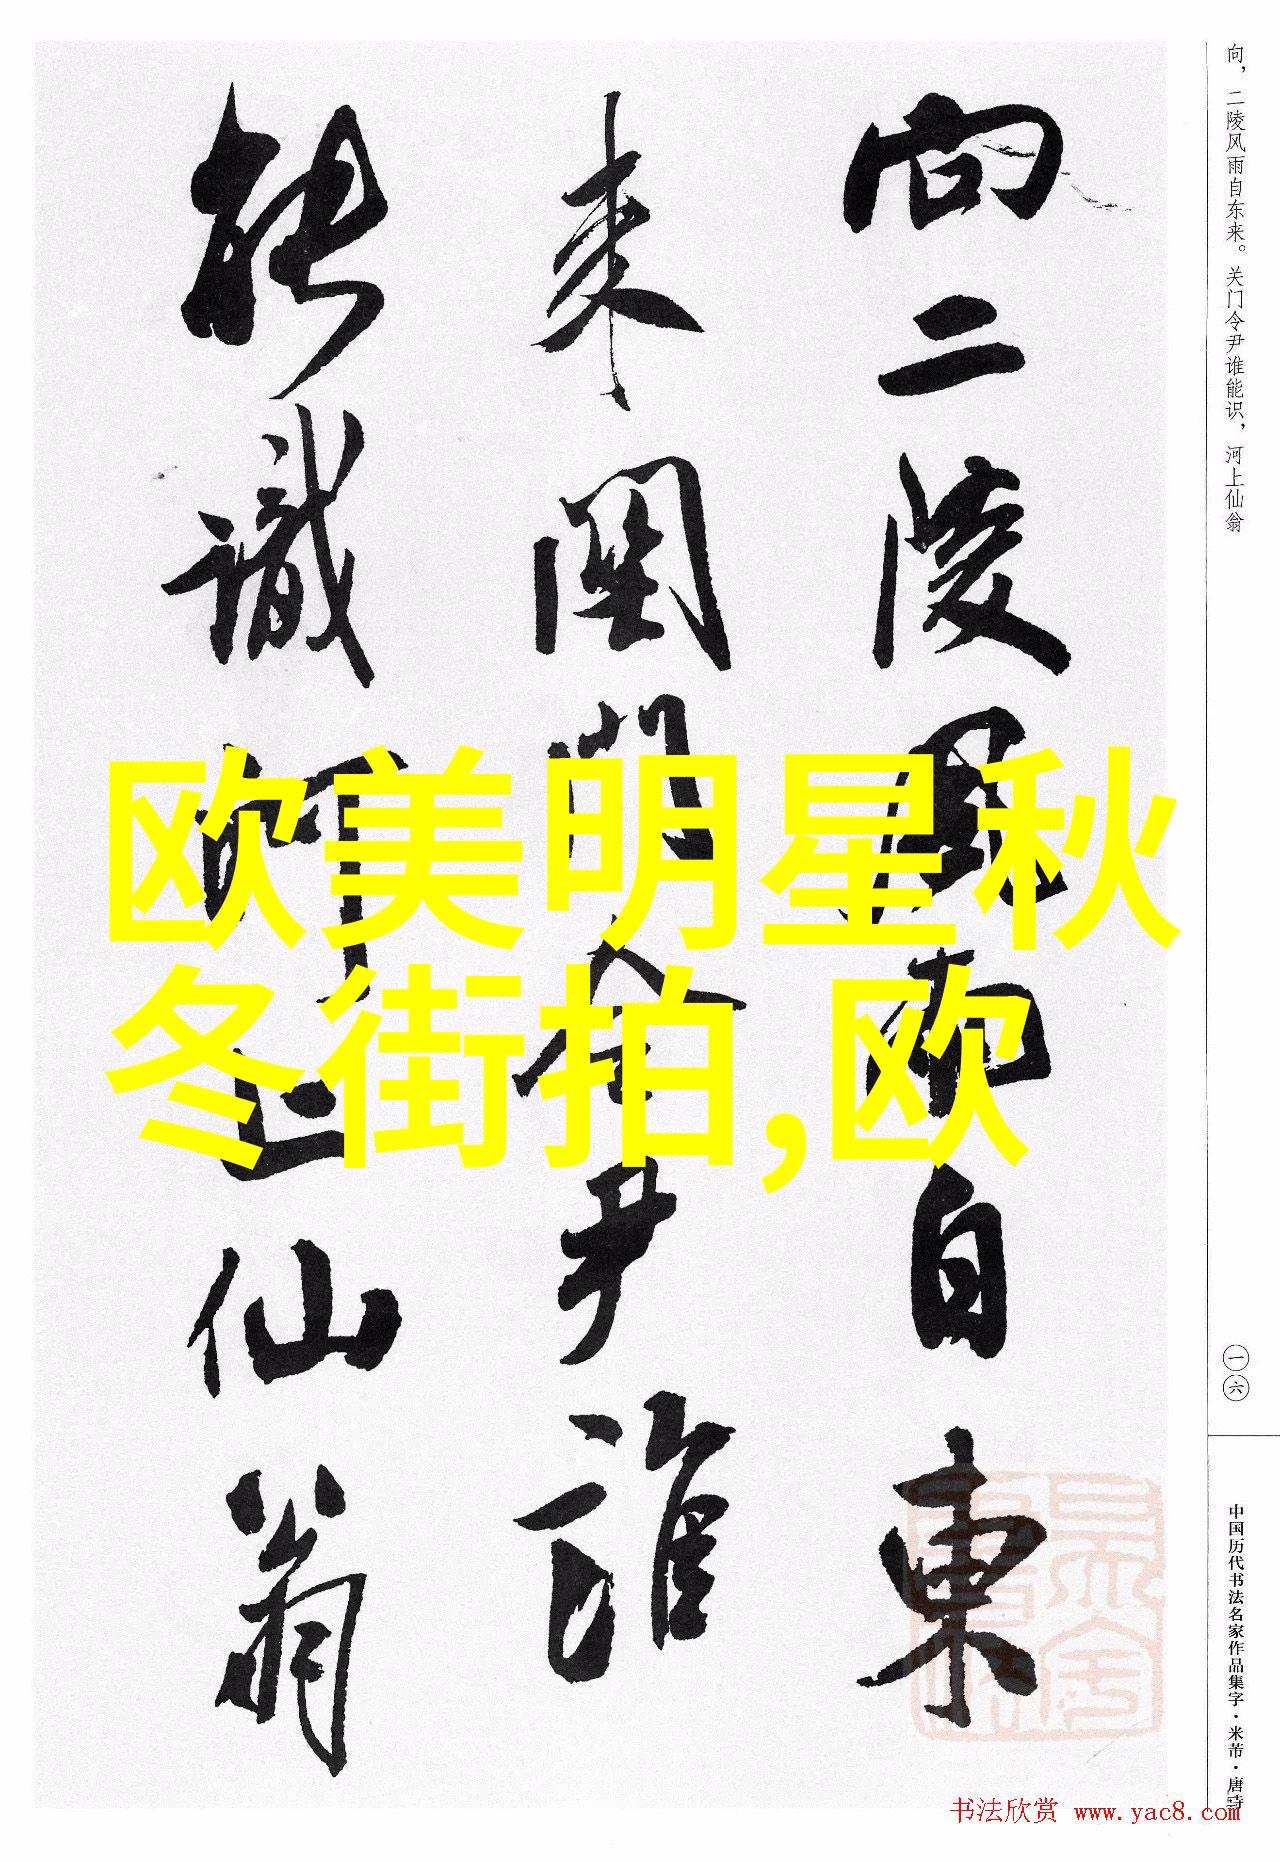 向，二陵风雨自东来。关门令尹谁能识，河上仙翁
向二陵風雨自東
来關門令尹誰
能識河上仙翁
欧美明星秋
冬街拍,欧
一六
中国历代书法名家作品集字·米芾·唐诗
书法欣赏 www.yac8.com